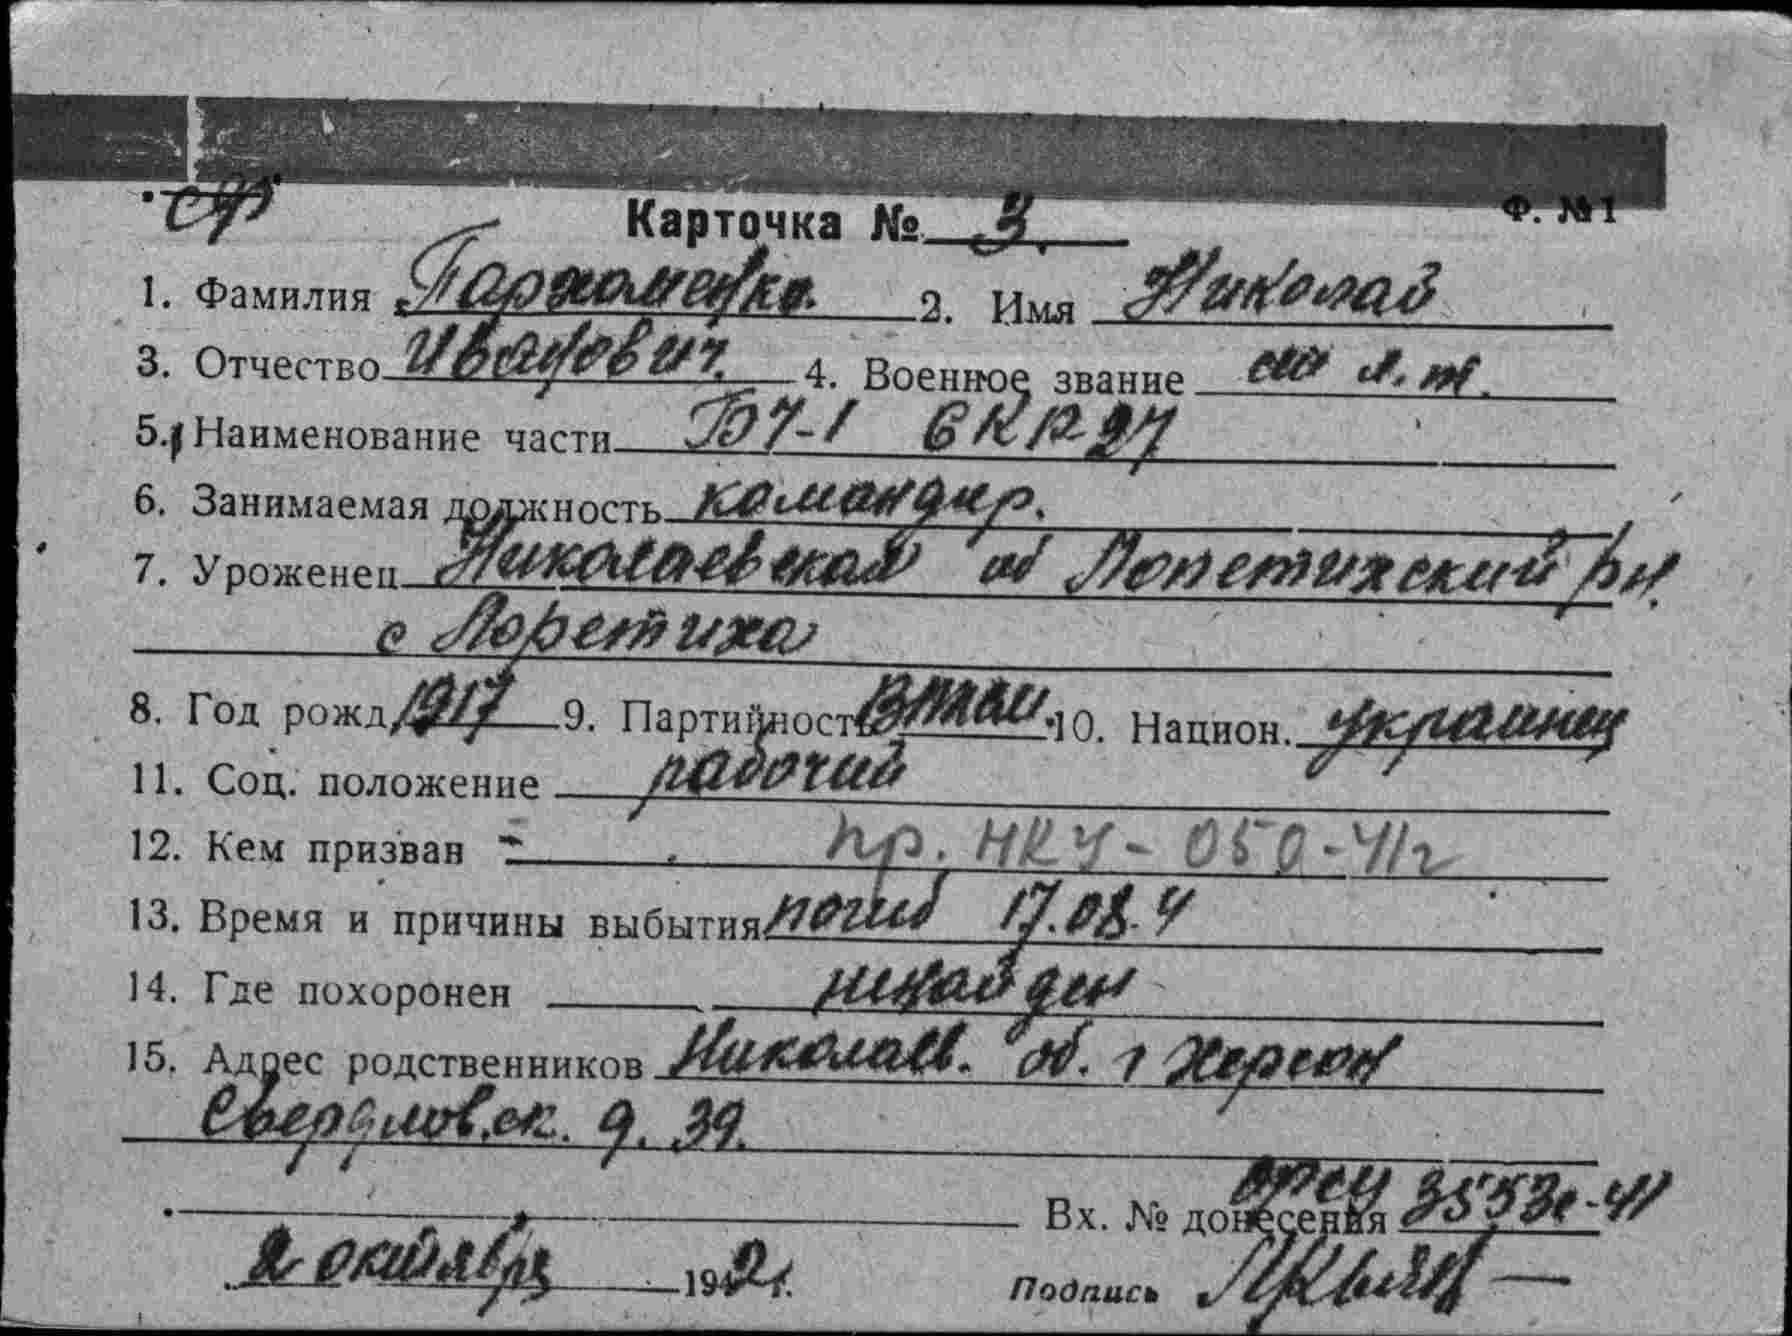 Ф. №1
Карточка № 3.
1. Фамилия Пархоменко. 2. Имя Николай
3. Отчество Иванович. 4. Военное звание лт.
5. Наименование части БЧ-1 СКР 27
6. Занимаемая должность командир.
7. Уроженец Николаевская об Лопетихский рн.
с Лопетиха
8. Год рожд. 1917 9. Партийность 10. Национ. украинец
11. Соц. положение рабочий
12. Кем призван пр. НКУ - 050-41г
13. Время и причины выбытия погиб 17.08.4
14. Где похоронен ненайден
15. Адрес родственников Николаев. об. г Херсон
Свердловск. д. 39.
Вх. № донесения 3553с-41
2 октября 1942г.
Подпись